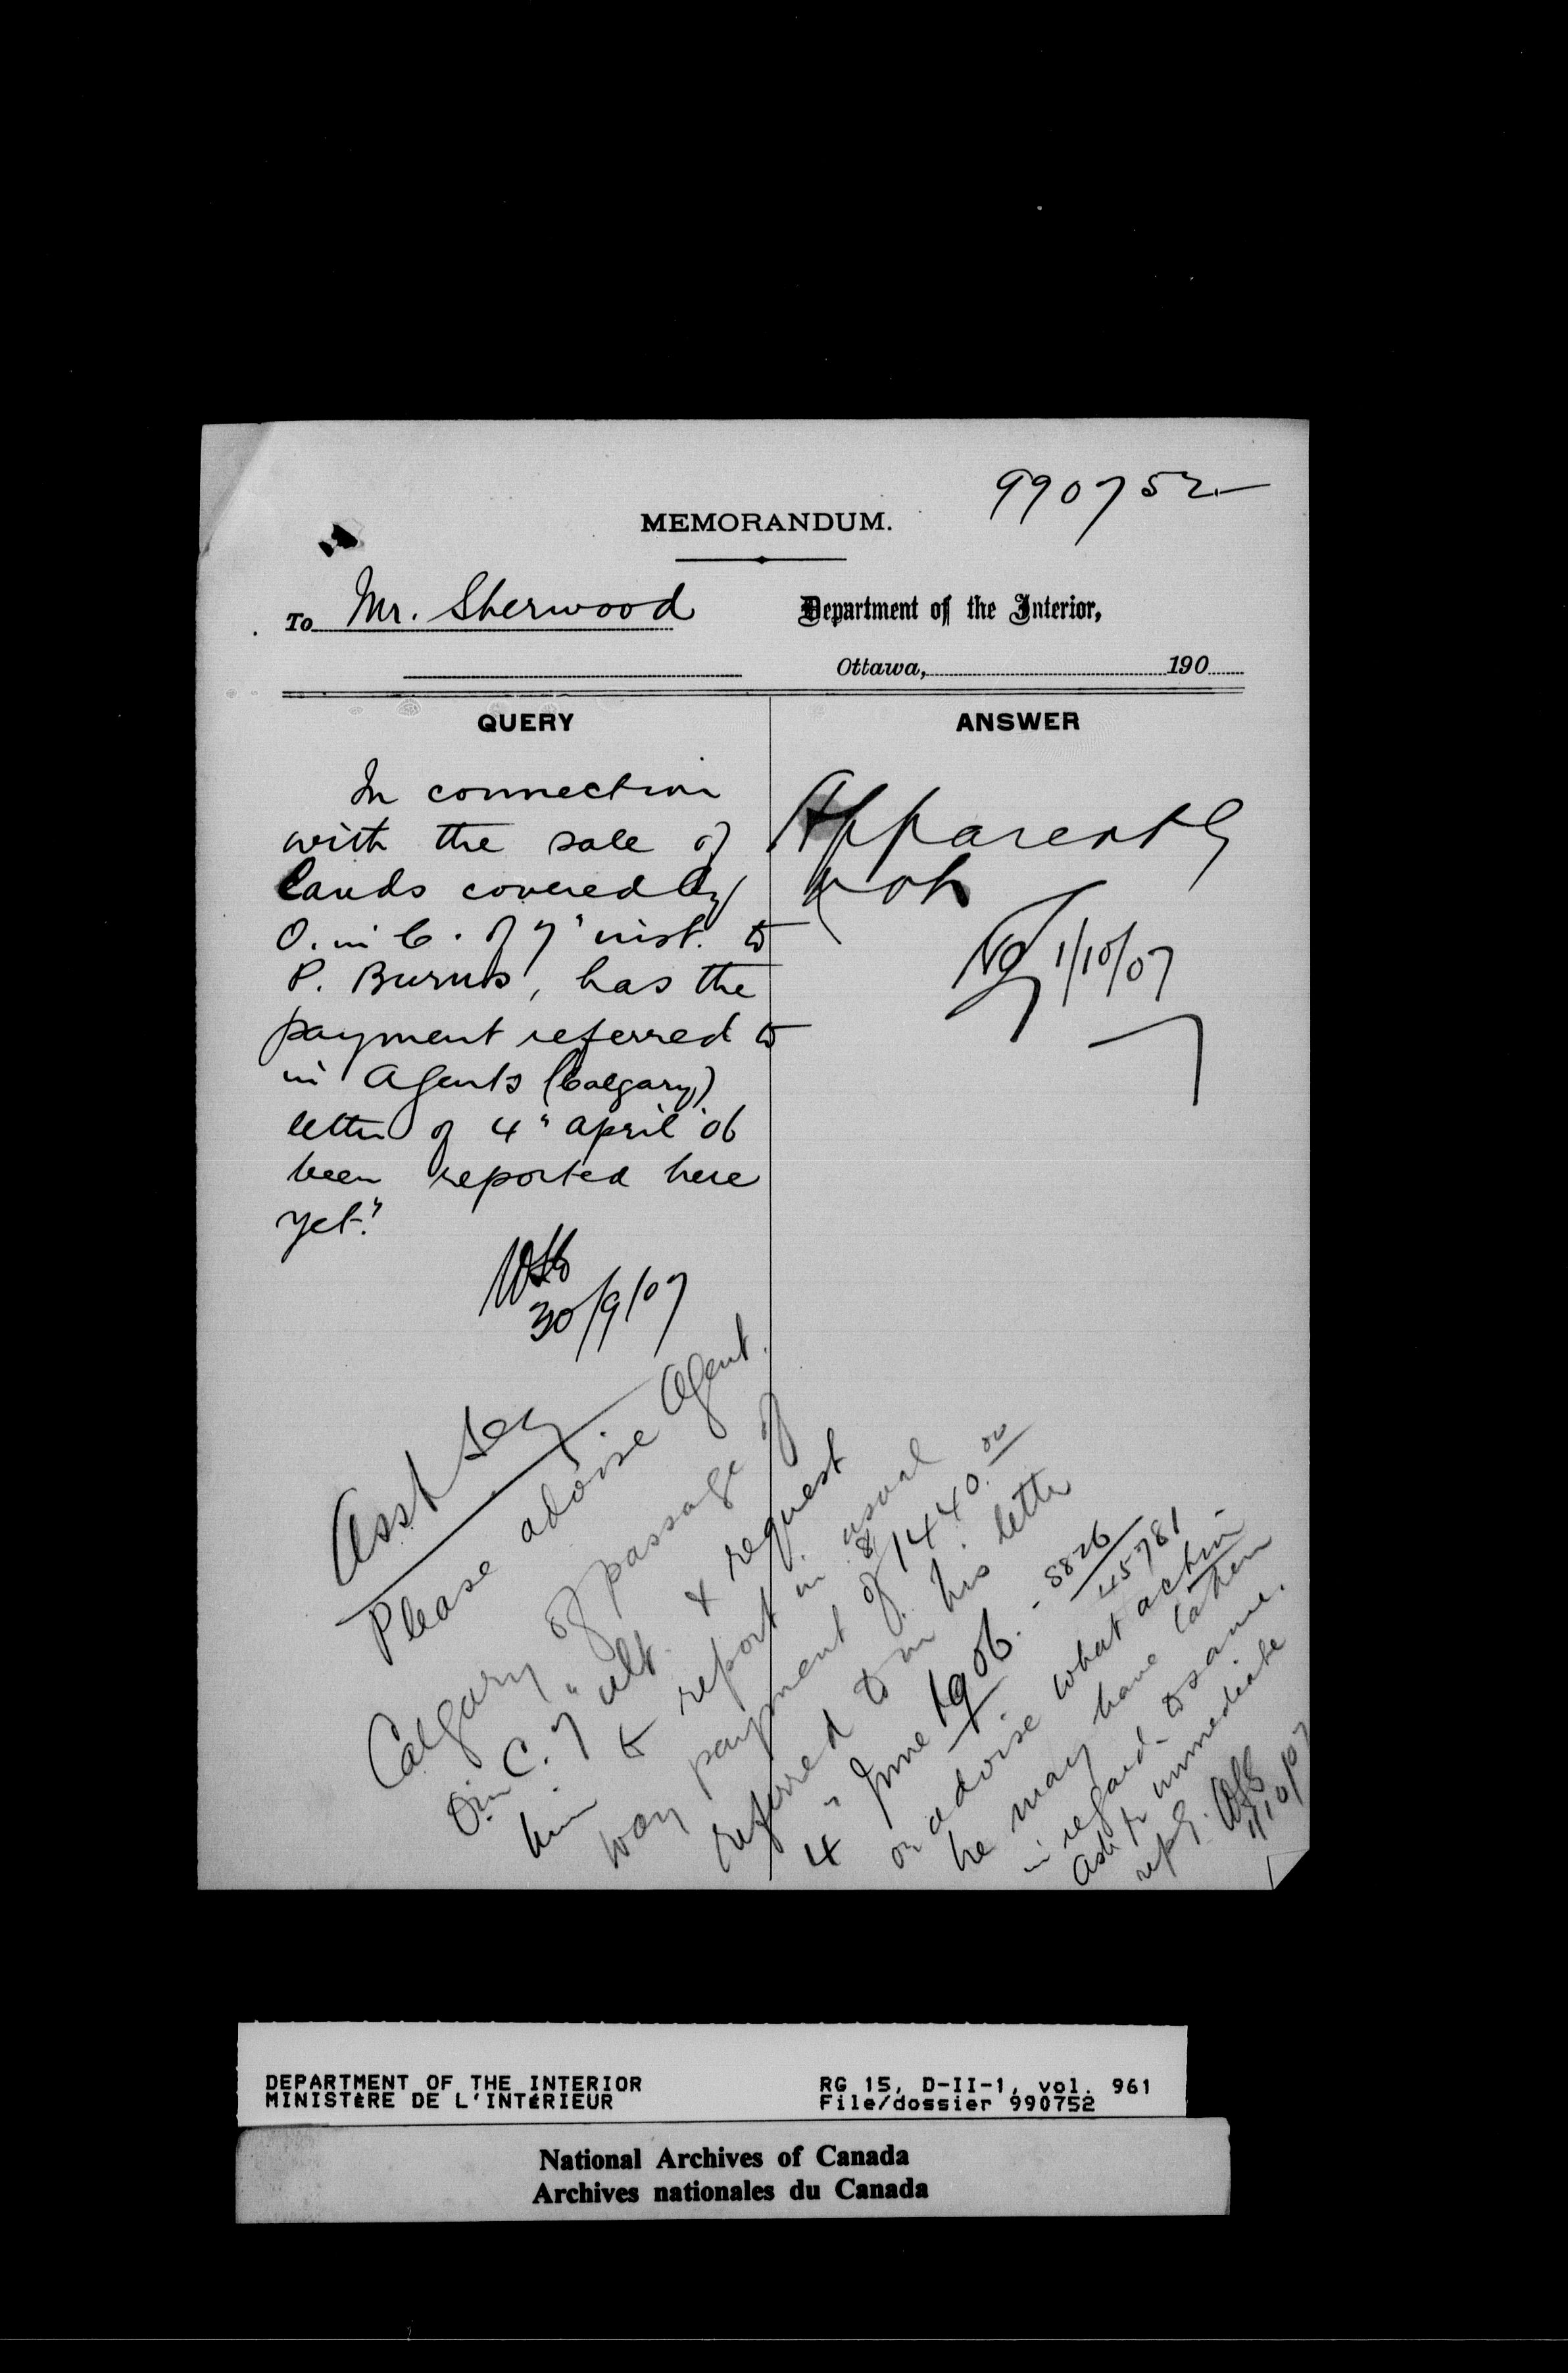 990752
MEMORANDUM.
To Mr. Sherwood
Department of the Interior,
Ottawa, 190
QUERY
In connection
with the sale of
lands covered by
O. in C. of 7" inst. to
P. Burns, has the
payment referred to
in Agents (Calgary)
letter of 4" April '06
been reported here
yet?"
30/9/07
ANSWER
Apparently
not
1/10/07
Asst Secy
Please advise Agent.
Calgary of passage of
O in C. 7" ult. & request
him to report in usual
way payment of $1440.00
referred to in his letter
4" June 1906. - 8826
45781
or advise what action
he may have taken
in regard to same.
Ask for immediate
reply.
1/10/07
DEPARTMENT OF THE INTERIOR
MINISTÈRE DE L'INTÉRIEUR
RG 15, D-II-1, vol. 961
File/dossier 990752
National Archives of Canada
Archives nationales du Canada